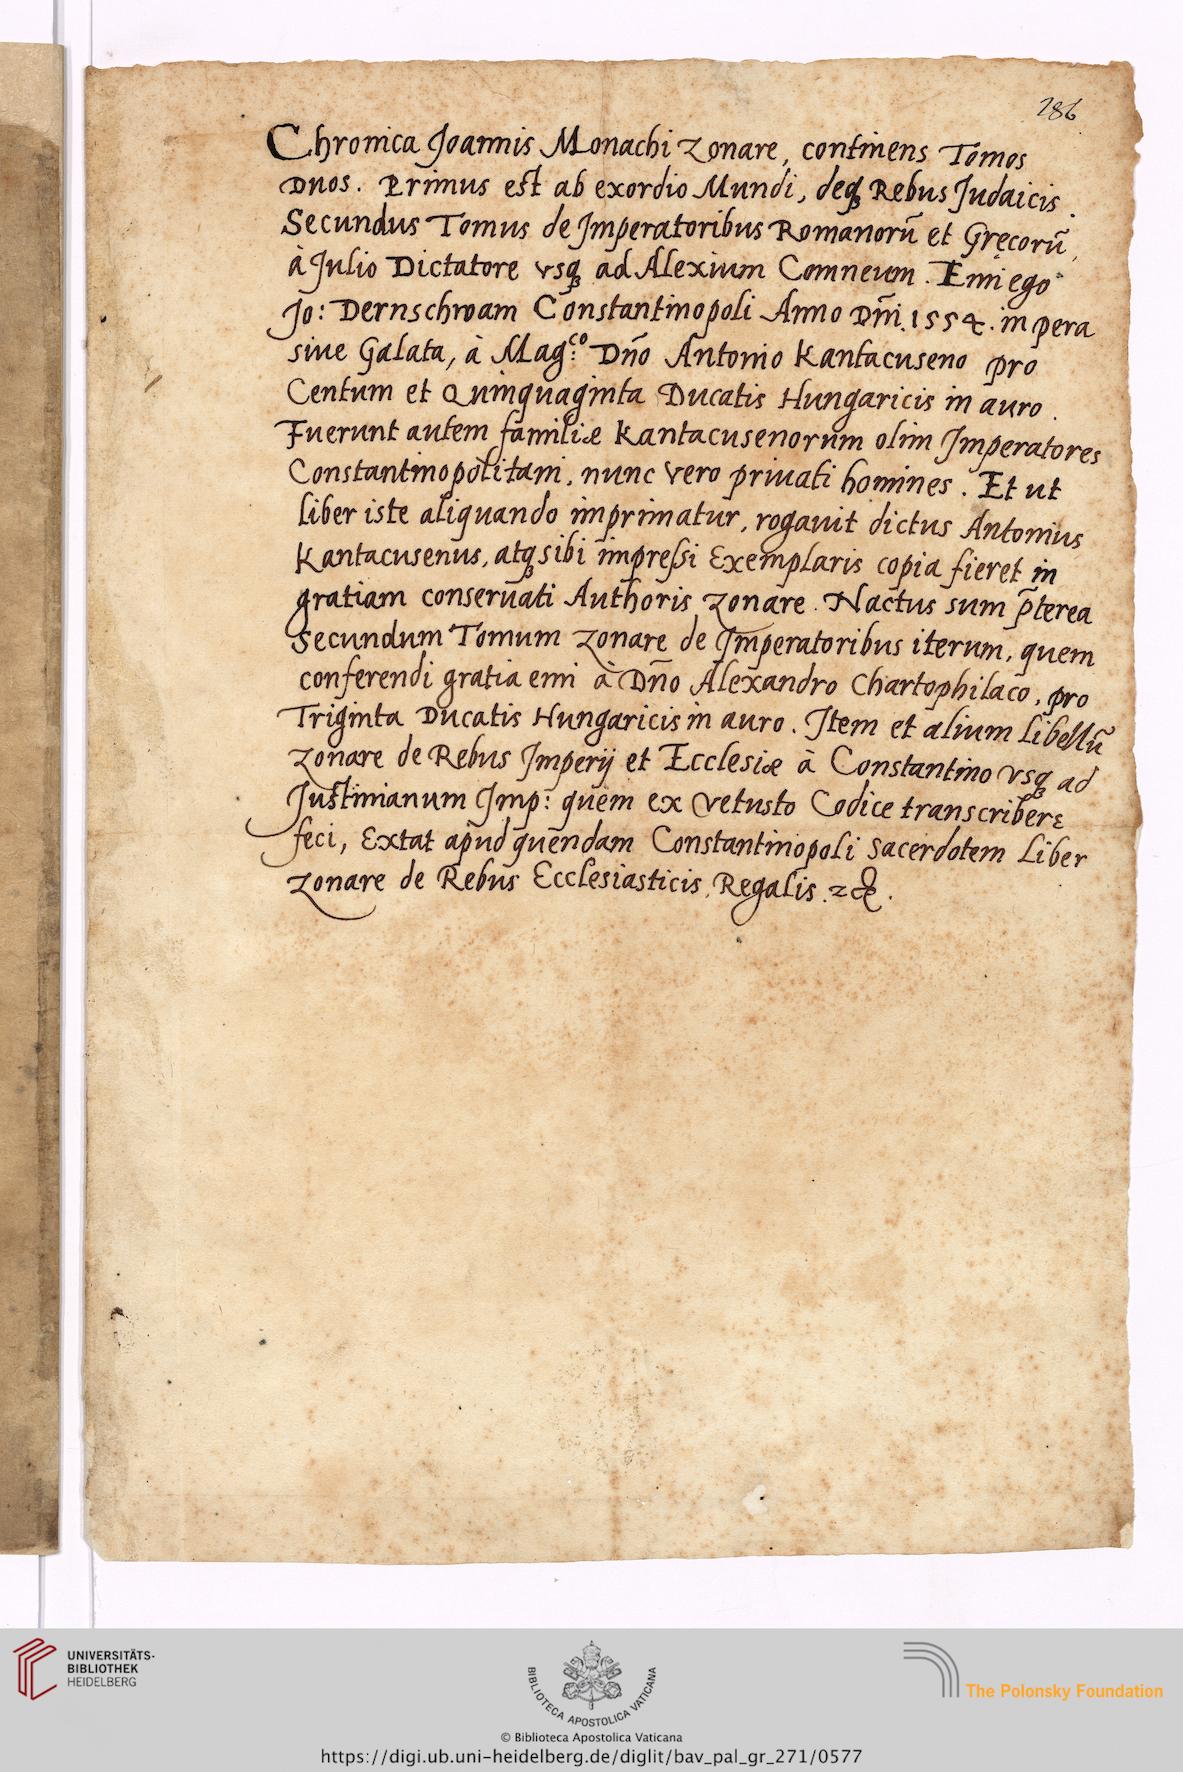 286
Chronica Joannis Monachi Zonare, continens Tomos
Duos. Primus est ab exordio Mundi, deqꝫ Rebus Judaicis.
Secundus Tomus de Imperatoribus Romanorū et Gręcorū,
à Julio Dictatore vsqꝫ ad Alexium Comneum. Emi ego
Jo: Dernschwam Constantinopoli Anno Dn̄i. 1554. in pera
siue Galata, à Mag:co Dn̄o Antonio Kantacuseno pro
Centum et Quinquaginta Ducatis Hungaricis in auro.
Fuerunt autem familiæ Kantacusenorum olim Imperatores
Constantinopolitani, nunc vero priuati homines. Et ut
liber iste aliquando imprimatur, rogauit dictus Antonius
Kantacusenus, atqꝫ sibi impressi Exemplaris copia fieret in
gratiam conseruati Authoris Zonare. Nactus sum p̄terea
Secundum Tomum Zonare de Imperatoribus iterum, quem
conferendi gratia emi à Dn̄o Alexandro Chartophilaco, pro
Triginta Ducatis Hungaricis in auro. Item et alium libellū
Zonare de Rebus Imperij et Ecclesiæ à Constantino vsqꝫ ad
Justinianum Imp: quem ex vetusto Codice transcribere
feci, Extat apud quendam Constantinopoli sacerdotem Liber
Zonare de Rebus Ecclesiasticis, Regalis.
UNIVERSITÄTS-
BIBLIOTHEK
HEIDELBERG
BIBLIOTECA APOSTOLICA VATICANA
The Polonsky Foundation
© Biblioteca Apostolica Vaticana
https://digi.ub.uni-heidelberg.de/diglit/bav_pal_gr_271/0577